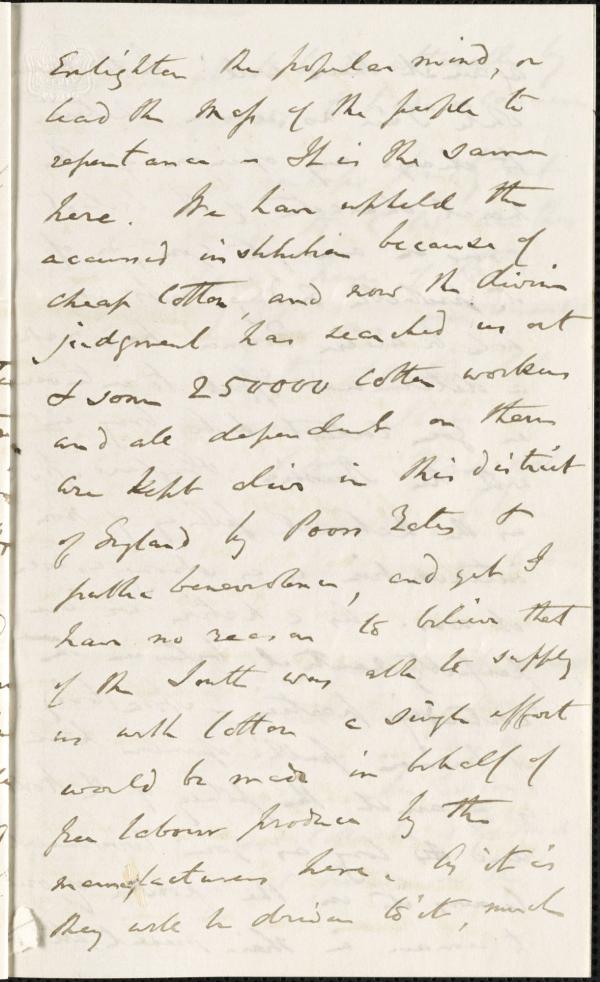 Enlighten the popular mind, or
lead the Mass of the people to
repentance – It is the same
here. We have upheld the
accursed institution because of
cheap Cotton, and now the divine
judgment has searched us out
& some 250000 Cotton workers
and all dependent on them
are kept alive in this district
of England by Poors Rates &
public benevolence, and yet I
have no reason to believe that
if the South was able to supply
us with Cotton a single effort
would be made in behalf of
free labour produce by the
manufacturers here. As it is
they will be driven to it, much